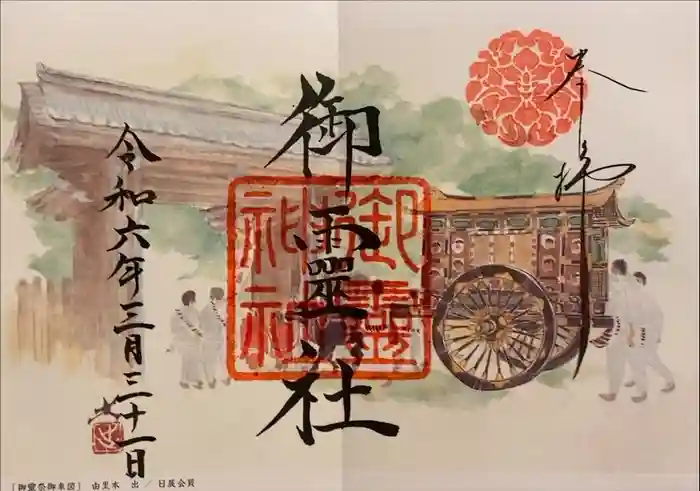 奉拝
御靈社
御靈社
令和六年三月三十一日
［御靈祭御車図］ 由里本 出 ／ 日展会員